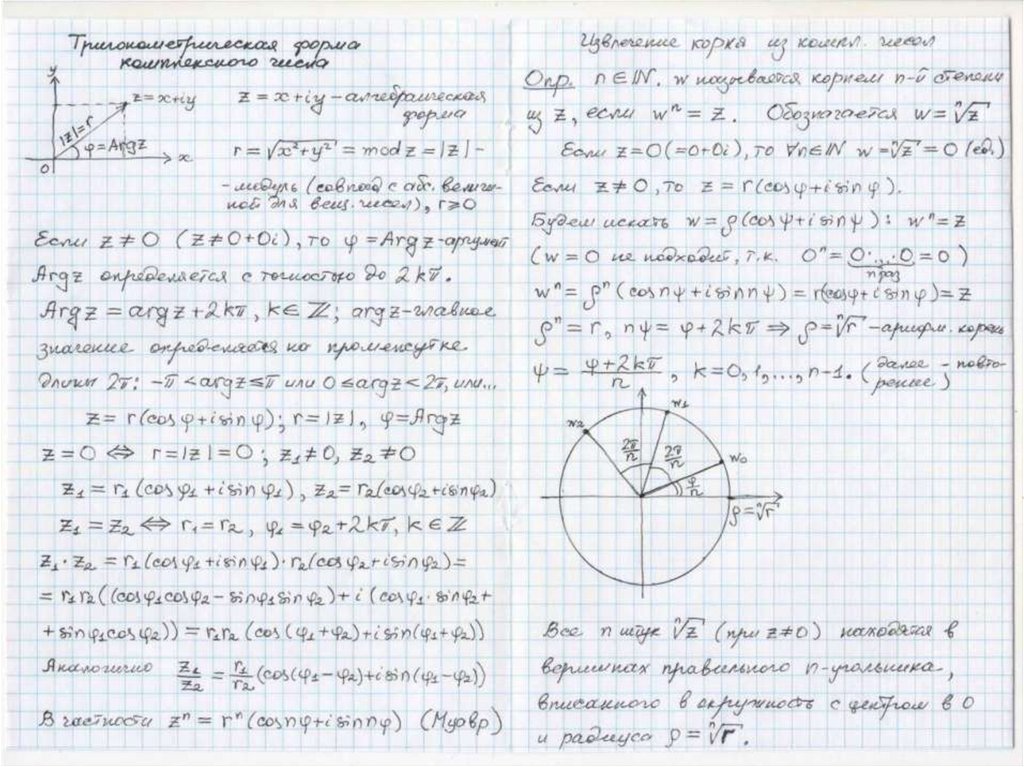 Тригонометрическая форма
комплексного числа
y
z=x+iy
|z|=r
φ=Argz
x
0
z = x+iy – алгебраическая
форма
r = √(x²+y²) = mod z = |z| –
– модуль (совпад. с абс. величи-
ной для вещ. чисел), r ⩾ 0
Если z ≠ 0 (z ≠ 0+0i), то φ = Arg z – аргумент
Arg z определяется с точностью до 2kπ.
Arg z = arg z + 2kπ, k ∈ ℤ; arg z – главное
значение определяется на промежутке
длины 2π: –π < arg z ≤ π или 0 ≤ arg z < 2π, или...
z = r(cos φ + i sin φ); r = |z|, φ = Arg z
z = 0 ⇔ r = |z| = 0; z₁ ≠ 0, z₂ ≠ 0
z₁ = r₁(cos φ₁ + i sin φ₁), z₂ = r₂(cos φ₂ + i sin φ₂)
z₁ = z₂ ⇔ r₁ = r₂, φ₁ = φ₂ + 2kπ, k ∈ ℤ
z₁·z₂ = r₁(cos φ₁ + i sin φ₁)·r₂(cos φ₂ + i sin φ₂) =
= r₁r₂((cos φ₁ cos φ₂ – sin φ₁ sin φ₂) + i(cos φ₁·sin φ₂ +
+ sin φ₁ cos φ₂)) = r₁r₂(cos(φ₁+φ₂) + i sin(φ₁+φ₂))
Аналогично z₁/z₂ = r₁/r₂ (cos(φ₁–φ₂) + i sin(φ₁–φ₂))
В частности zⁿ = rⁿ(cos nφ + i sin nφ) (Муавр)
Извлечение корня из компл. чисел
Опр. n ∈ ℕ. w называется корнем n-й степени
из z, если wⁿ = z. Обозначается w = ⁿ√z
Если z = 0 (=0+0i), то ∀n∈ℕ w = ⁿ√z = 0 (ед.)
Если z ≠ 0, то z = r(cos φ + i sin φ).
Будем искать w = ρ(cos ψ + i sin ψ): wⁿ = z
(w = 0 не подходит, т.к. 0ⁿ = 0·...·0 = 0)
n раз
wⁿ = ρⁿ(cos nψ + i sin nψ) = r(cos φ + i sin φ) = z
ρⁿ = r, nψ = φ + 2kπ ⇒ ρ = ⁿ√r – арифм. корень
ψ = (φ+2kπ)/n, k = 0, 1, ..., n–1. (далее – повто-
рение)
w₂
w₁
w₀
2π/n
2π/n
φ/n
ρ = ⁿ√r
Все n штук ⁿ√z (при z ≠ 0) находятся в
вершинах правильного n-угольника,
вписанного в окружность с центром в 0
и радиуса ρ = ⁿ√r.